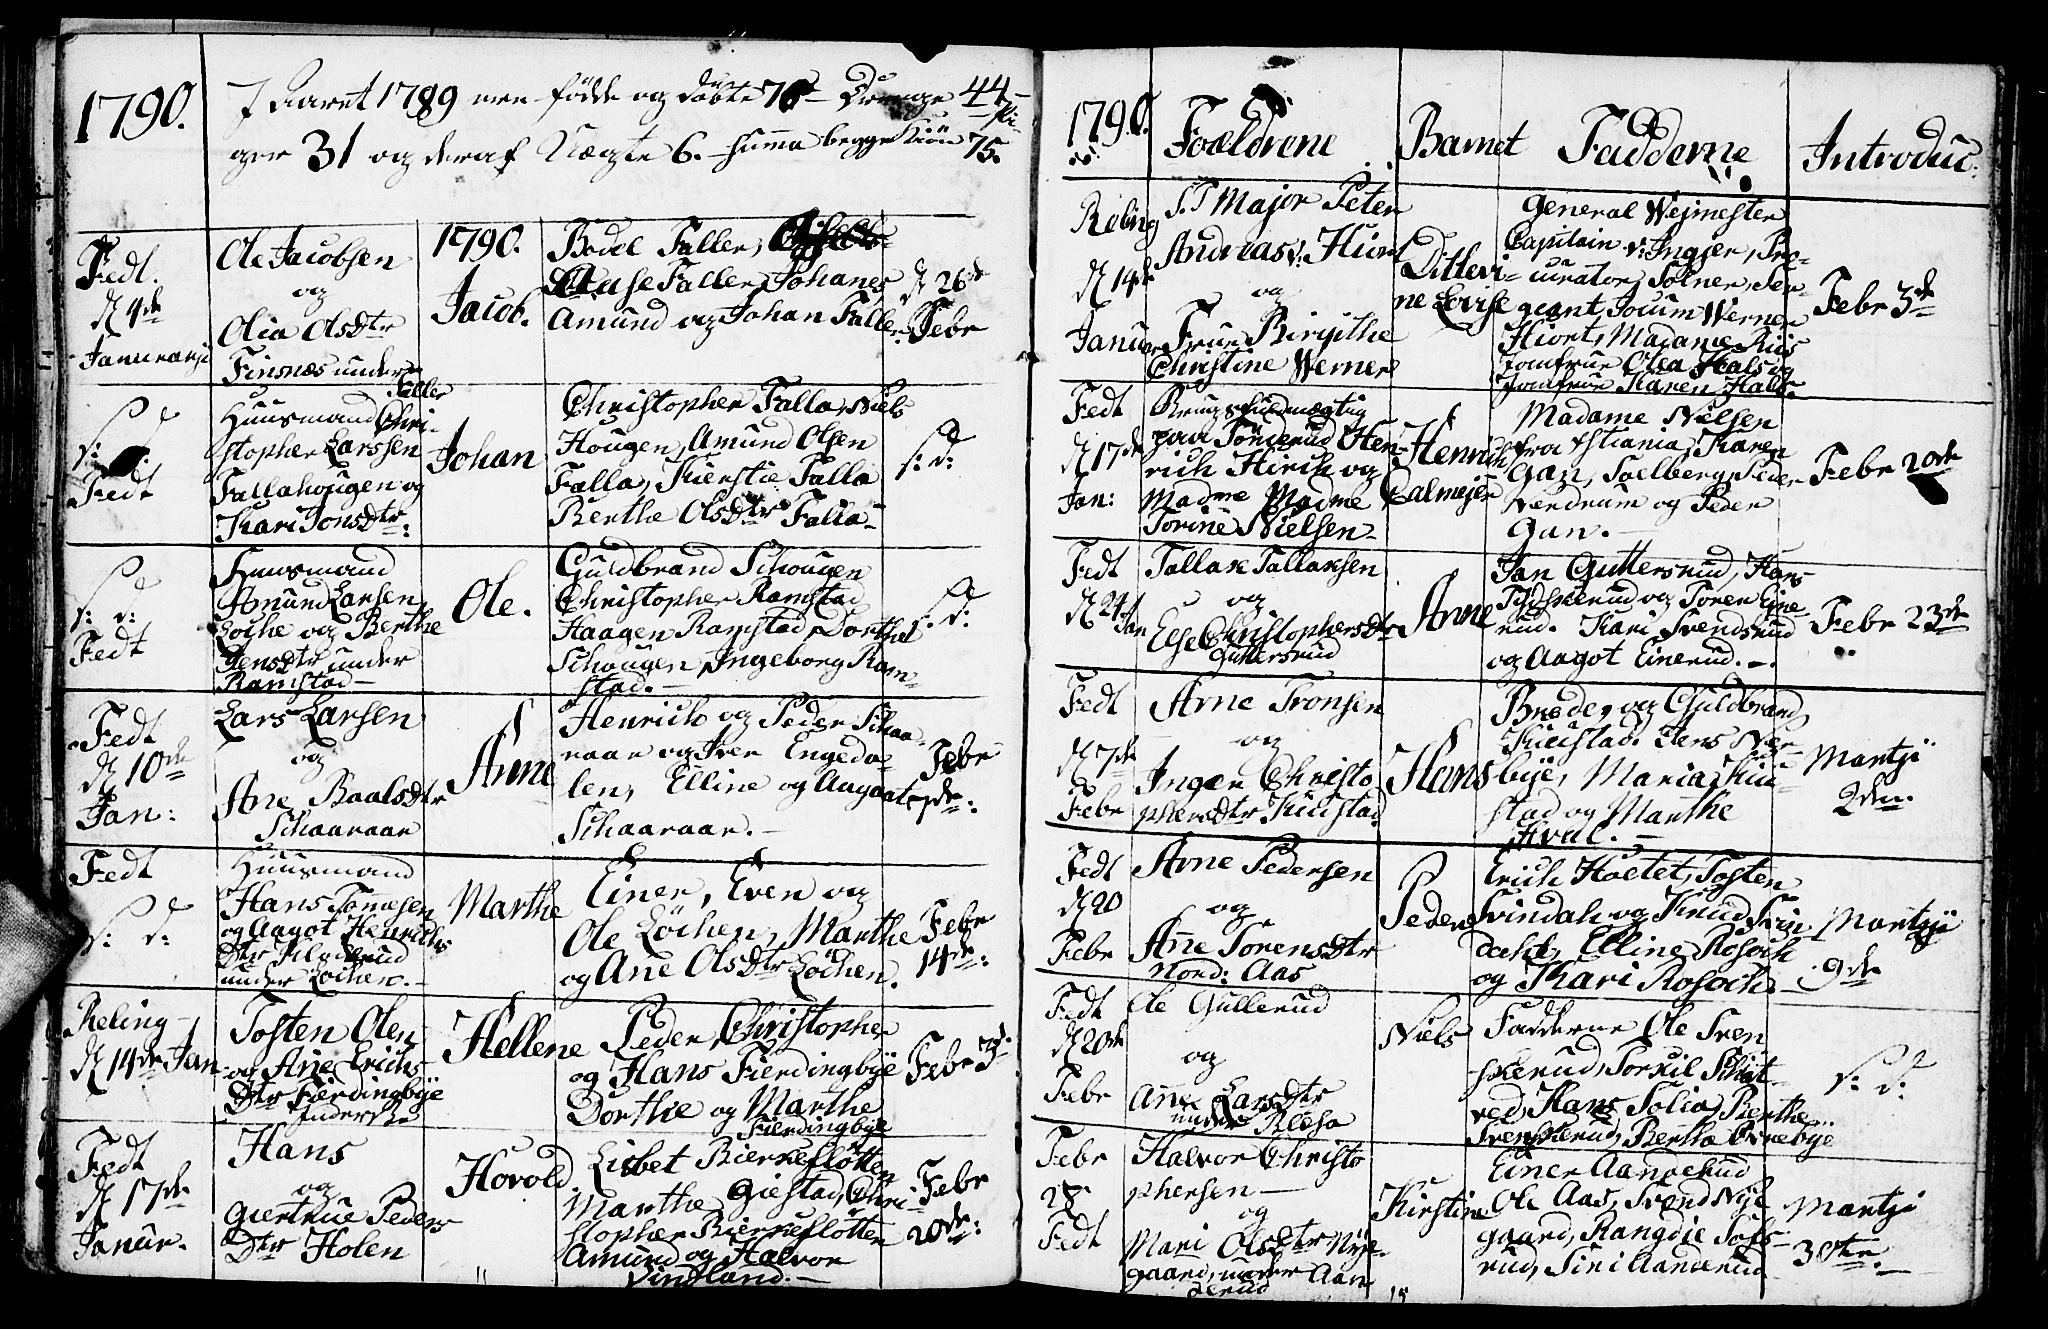 1790.
I Aaret 1789 ere fødde og døbte 75 Drenge 44 Pi-
ger 31 og deraf Uægte 6. Summa begge Kiøn 75.
Fedt.
d 4de
Januarii
Ole Jacobsen
og
Olia Olsdtr
Finsnæs under
Faller
1790.
Jacob.
Bodel Faller,
Aase Faller, Johanes
Amund og Johan Faller
d 26de
Febr
s: d:
Fedt
Huusmand Chri-
stopher Larssen
Fallahougen og
Kari Jonsdtr:
Johan
Christopher Falla, Niels
Hougen, Amund Olsen
Falla, Kierstie Falla
Berthe Olsdtr Falla
s: d:
s: d:
Fedt
Huusmand
Amund Larsen
Loche og Berthe
Jensdtr under
Ramstad
Ole.
Guldbrand Schougen
Christopher Ramstad
Haagen Ramstad, Dorthe
Schougen, Ingeborg Ram-
stad.
s: d:
Fedt
d 10de
Jan:
Lars Larsen
og
Ane Baalsdtr
Schaaraar
Anne
Henrich og Peder Schaa-
raar og Iver Engeda-
len, Elline og Aagaat
Schaaraar.
Febr
Fedt
s: d:
Huusmand
Hans Tomesen
og Aagot Henrichs
Dtr
under Løchen.
Marthe
Einer, Even og
Ole Løchen, Marthe
og Ane Olsdtr Løchen.
Febr
14de:
Reling
d 14de Jan
Tosten Olen
og Ane Erichs
Dtr Fierdingbye
Inderste
Hellene
Peder, Christopher
og Hans Fierdingbye
Dorthe og Marthe
Fierdingbye
Febr 3de
Fedt
d 17de
Januar.
Hans
og
Giertrue Peders
Dtr Holen
Hovold
Lisbet Bierkefløtten
Marthe Giestad, Chri-
stopher Bierkefløtten
Amund og Halvor
Vindland.
Febr
20de:
1790.
Forældrene
Barnet
Fadderne
Introduc:
Reling
d 14de
Januar
S. T Major Peter
Andreas v: Huns
og
Frue Birgithe
Christine Werner
Dittevi-
ne Lovise
General Wejmester
Capitain v: Ingier, Pro-
curator Tolner, Ser-
giant Jocum Werner
Hiort, Madame Riis
Jomfrue Olea Hals og
Jomfrue Karen Hals
Febr 3de
Fedt
d 17de
Jan:
paa Tønderud Hen-
rich Hirch og
Madme Madme
Torine Nielsen
Henrich
Dalmejer
Madame Nielsen
fra Xstiania, Karen
Gan, Solberg, Peder
Nerdrum og Peder
Gan.
Febr 20de
Fedt
d 24 Jan
Tallak Tallaksen
og
Else Christophersdtr
Guttersrud
Anne
Jan Guttersrud, Hans
og Soren Eine-
rud. Kari Svendsrud
og Aagot Einerud.
Febr 23de
Fedt
d 7de
Febr
Arne Tronsen
og
Inger Christo
phersdtr Kiustad
Hans
Brede, og Guldbrand
Kiustad. Jens Ner-
bye, Maria Kiu-
stad og Marthe
Hval.
Martji
2den.
Fedt
d 20
Febr
Arne Pedersen
og
Ane Sorensdtr
Nord: Aas
Peder
Erich Hoetet, Tosten
Svindal og Knud Svin
dahl, Elline Rosoch
og Kari Rosoch.
Martji
9de
Fedt
d 20de
Febr
Ole Gullerud
og
Ane Larsdtr
under Blesa
Niels
Fadderne Ole Sven
skerud, Torkil Schot-
red, Hans Tolia, Berthe
Svenskerud, Berthe Ovnebye
s: d:
Febr
28
Fedt
Halvor Christo
phersen
og
Mari Olsdtr Nye-
gaard, under Aan
derud
Kirstine
Einer Aanderud
Ole Aas, Svend Nye
gaard, Rangdie Tofs-
rud, Siri Aanderud
Martji
30te.